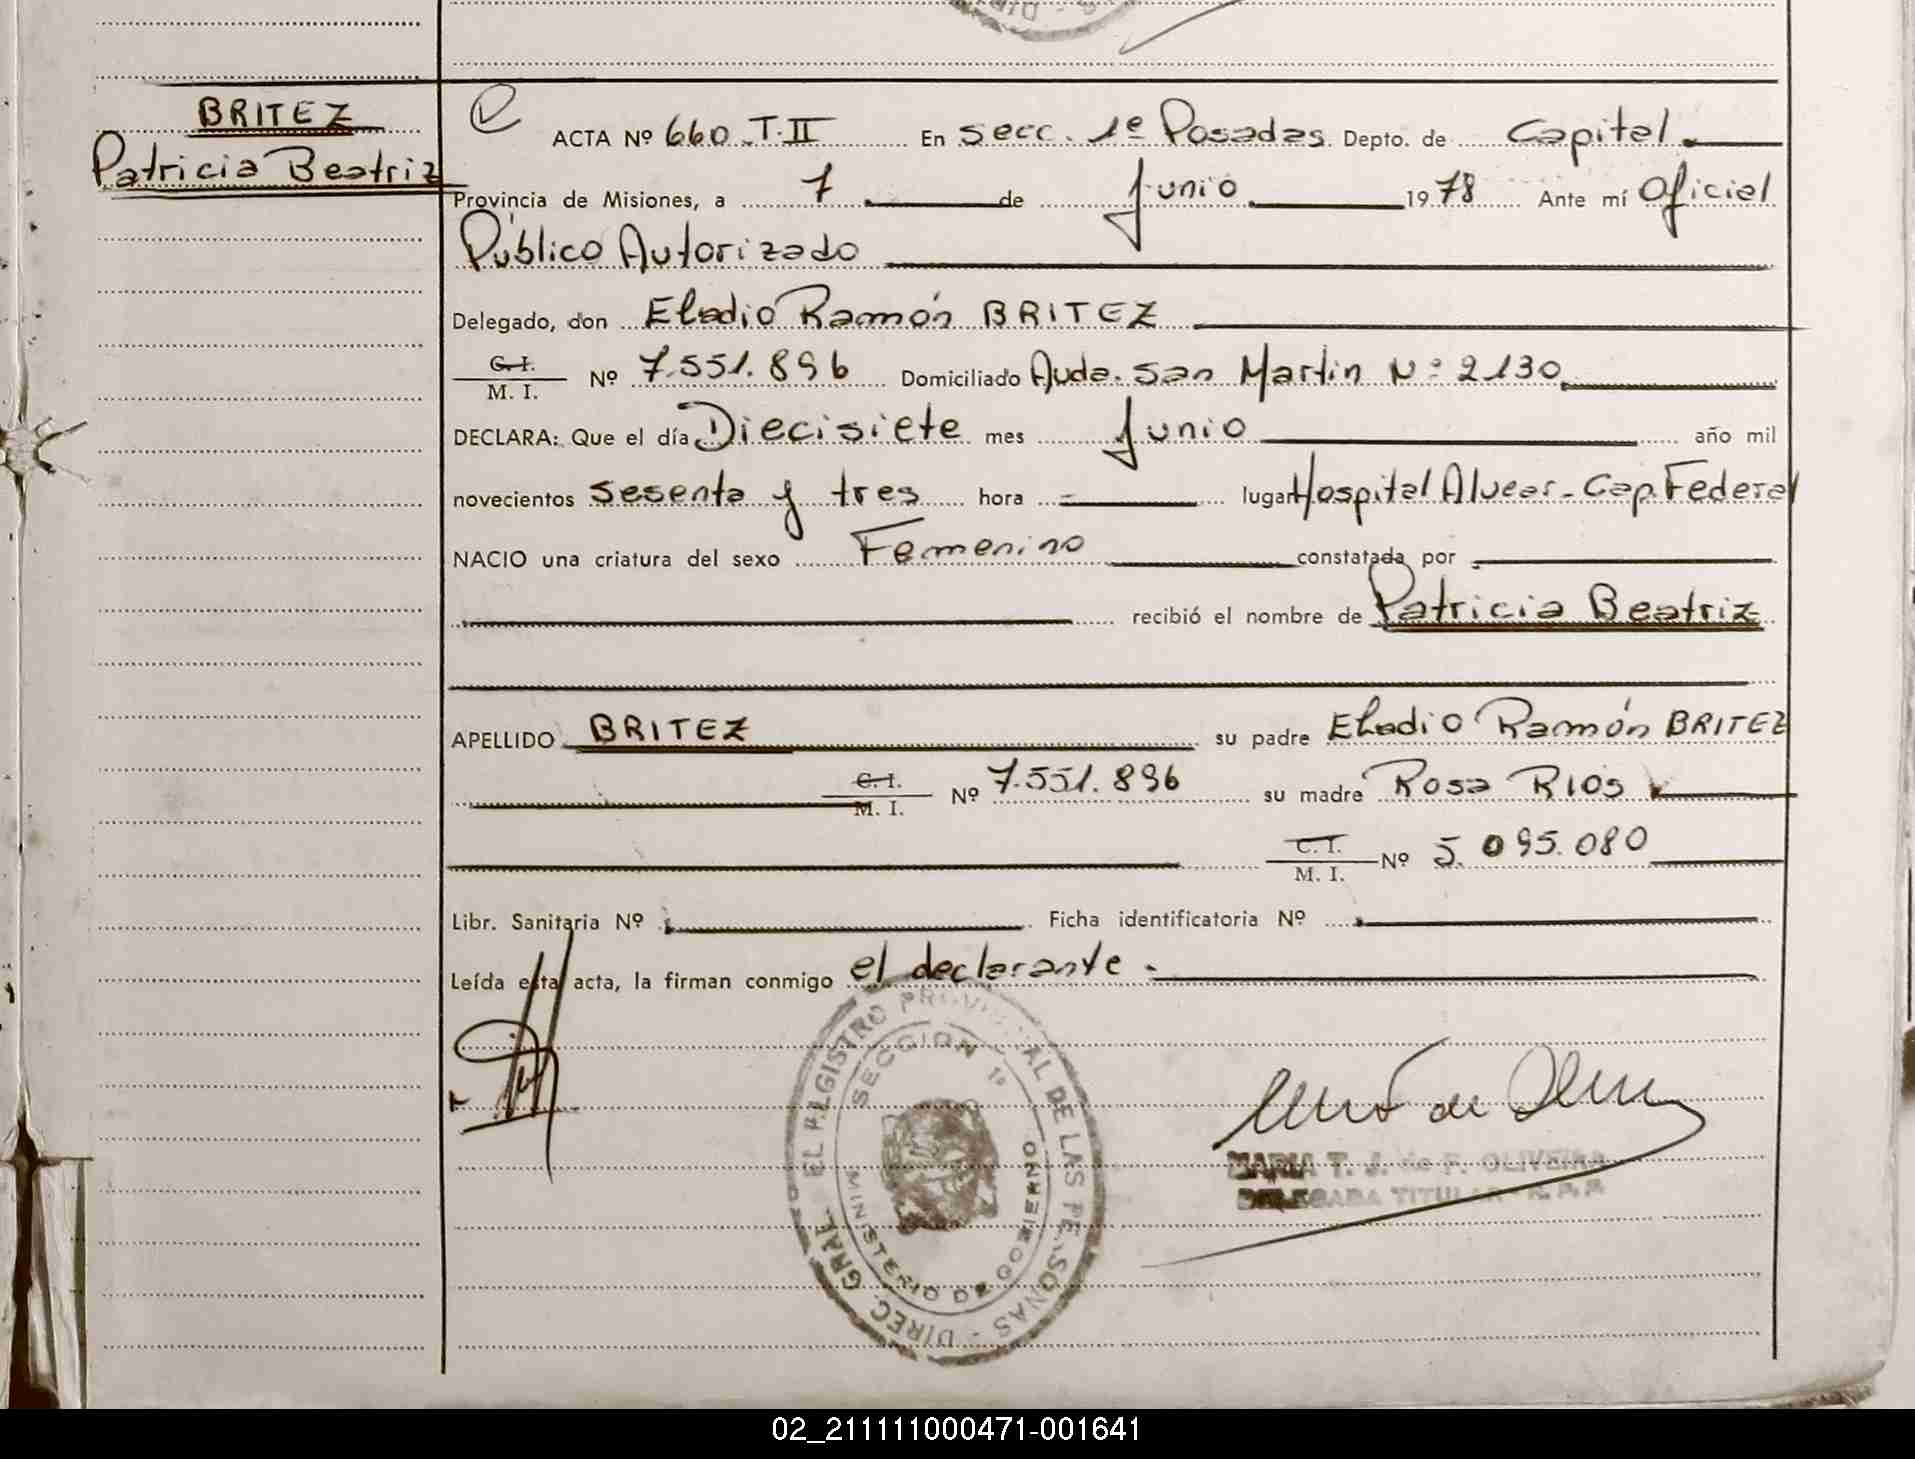 BRITEZ
Patricia Beatriz
ACTA Nº 660 T. II En secc. 1º Posadas Depto. de Capital
Provincia de Misiones, a 7 de Junio 1978 Ante mí Oficial
Público Autorizado
Delegado, don Eladio Ramón BRITEZ
C. I. / M. I. Nº 7.551.896 Domiciliado Avda. San Martin Nº 2130
DECLARA: Que el día Diecisiete mes Junio año mil
novecientos sesenta y tres hora - lugar Hospital Alvear - Cap. Federal
NACIO una criatura del sexo Femenino constatada por
recibió el nombre de Patricia Beatriz
APELLIDO BRITEZ su padre Eladio Ramón BRITEZ
C. I. / M. I. Nº 7.551.896 su madre Rosa RIOS
C. I. / M. I. Nº 5.095.080
Libr. Sanitaria Nº Ficha identificatoria Nº
Leída esta acta, la firman conmigo el declarante.-
DIREC. GRAL. EL REGISTRO PROVINCIAL DE LAS PERSONAS
SECCION 1ª
MINISTERIO DE GOBIERNO
MARIA T. J. de F. OLIVEIRA
DELEGADA TITULAR - R. P. P.
02_211111000471-001641